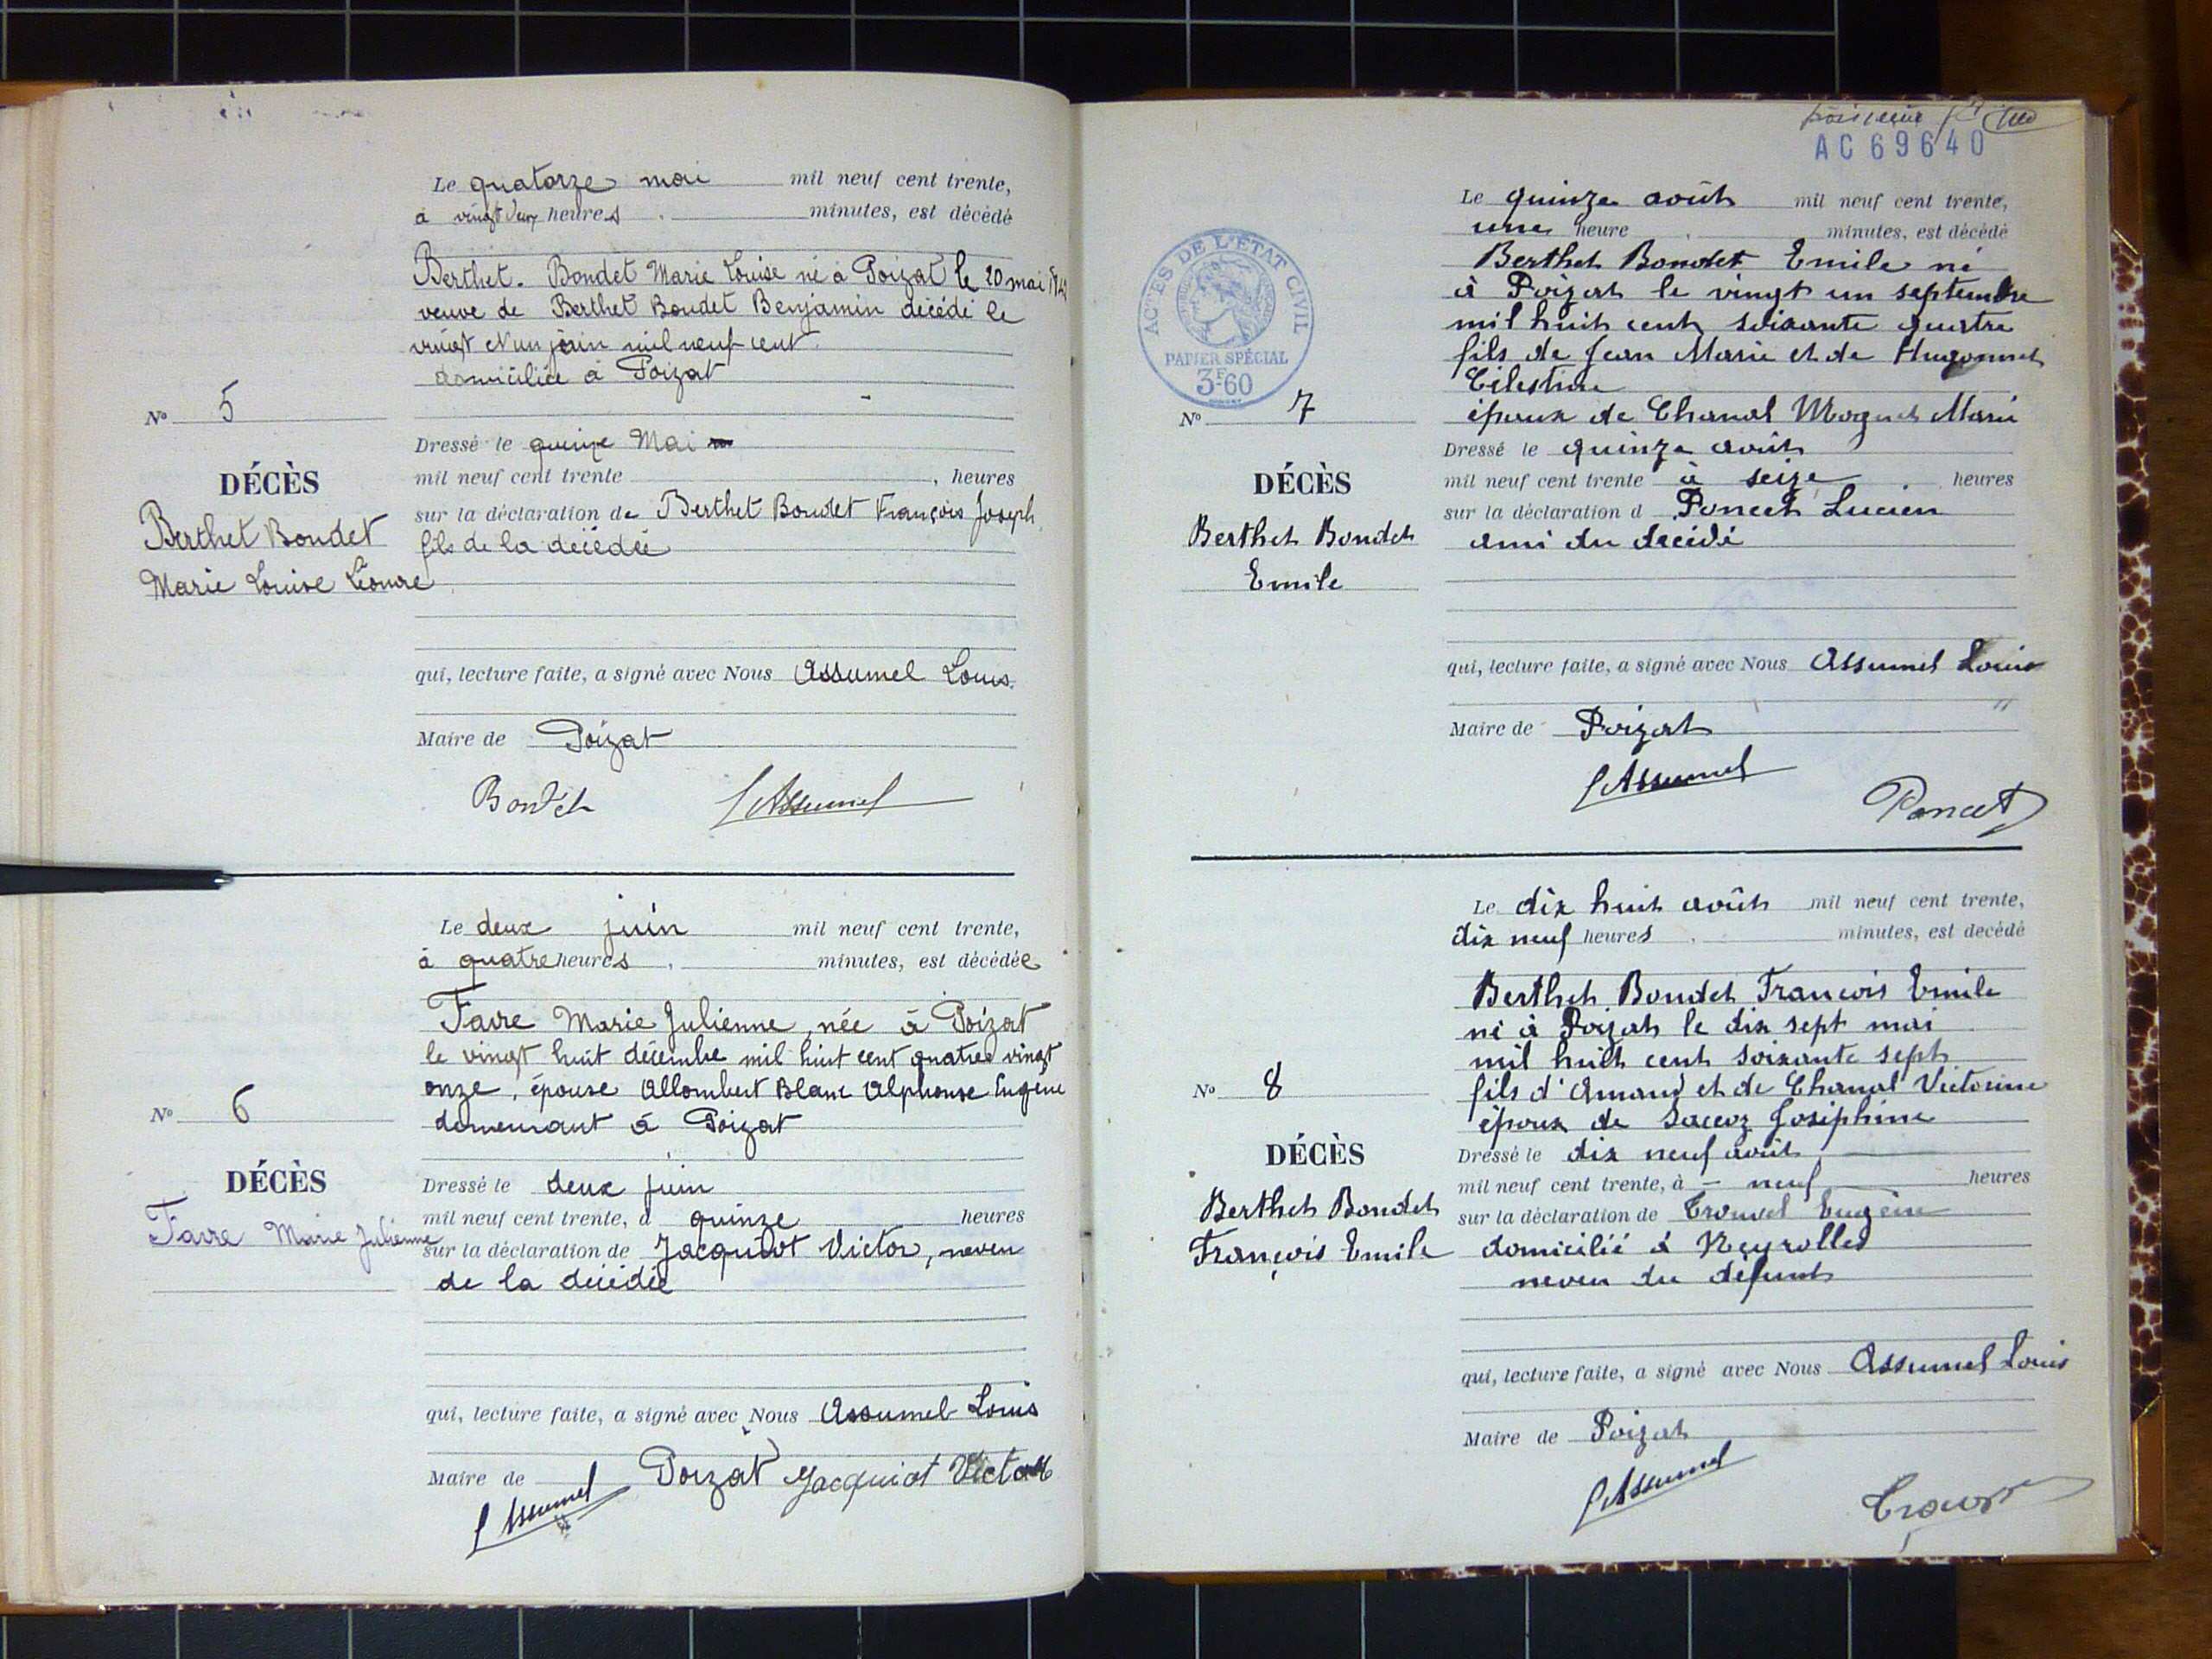 Le quatorze mai mil neuf cent trente,
à vingt deux heures minutes, est décédé
Berthet. Bondet Marie Louise né à Poizat le 20 mai
veuve de Berthet Bondet Benjamin décédé le
vingt et un juin mil neuf cent
domiciliée à Poizat
No 5
Dressé le quinze Mai
mil neuf cent trente , heures
DÉCÈS
sur la déclaration de Berthet Bondet François Joseph
Berthet Bondet
fils de la décédée
Marie Louise
qui, lecture faite, a signé avec Nous Assumel Louis.
Maire de Poizat
Bondet LAssumel
Le deux juin mil neuf cent trente,
à quatre heures , minutes, est décédée
Favre Marie Julienne, née à Poizat
le vingt huit décembre mil huit cent quatre vingt
onze, épouse Allombert Blanc Alphonse Eugène
demeurant à Poizat
No 6
DÉCÈS
Dressé le deux juin
mil neuf cent trente, à quinze heures
Favre Marie Julienne
sur la déclaration de Jacquiot Victor, neveu
de la décédée
qui, lecture faite, a signé avec Nous Assumel Louis
Maire de Poizat Jacquiot Victor
LAssumel
AC 69640
ACTES DE L'ETAT CIVIL
PAPIER SPÉCIAL
3F60
Le quinze août mil neuf cent trente,
une heure minutes, est décédé
Berthet Bondet Emile né
à Poizat le vingt un septembre
mil huit cent soixante quatre
fils de Jean Marie et de Hugonnet
Célestine
No 7
époux de Chanal Moquet Marie
Dressé le quinze août
DÉCÈS
mil neuf cent trente à seize heures
sur la déclaration d Poncet Lucien
Berthet Bondet
ami du décédé
Emile
qui, lecture faite, a signé avec Nous Assumel Louis
Maire de Poizat
LAssumel
Poncet
Le dix huit août mil neuf cent trente,
dix neuf heures minutes, est décédé
Berthet Bondet François Emile
né à Poizat le dix sept mai
mil huit cent soixante sept
No 8
fils d'Amand et de Chanal Victorine
époux de Joséphine
DÉCÈS
Dressé le dix neuf août
mil neuf cent trente, à - neuf heures
Berthet Bondet
sur la déclaration de Eugène
François Emile
domicilié à Neyrolles
neveu du défunt
qui, lecture faite, a signé avec Nous Assumel Louis
Maire de Poizat
LAssumel